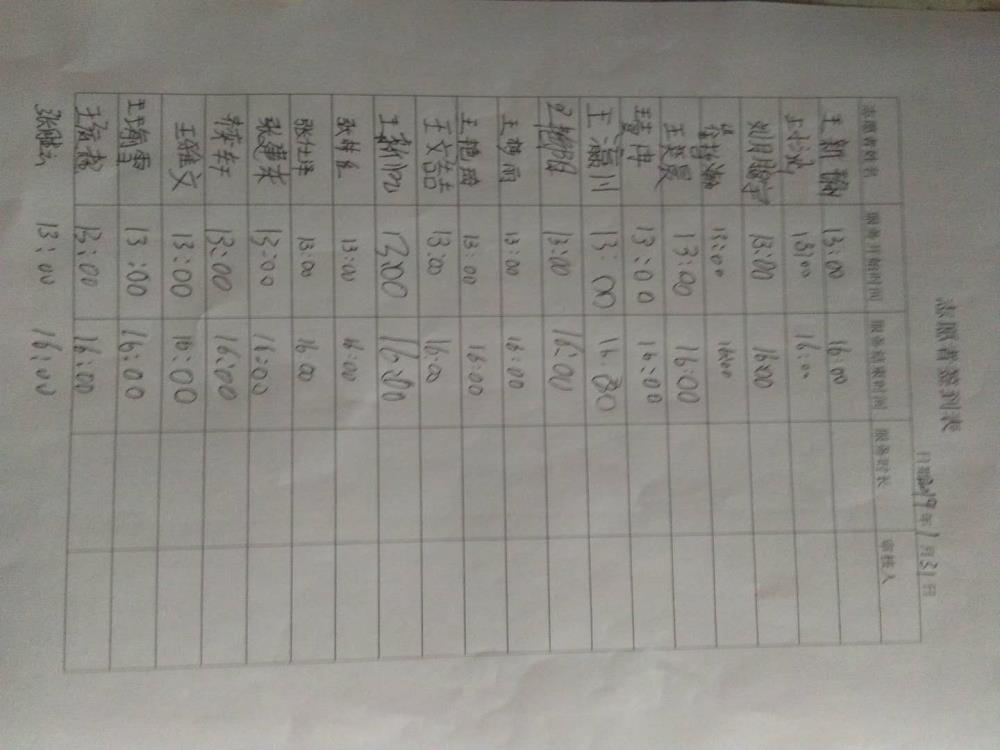 志愿者签到表
日期2019年1月31日
志愿者姓名 服务开始时间 服务结束时间 服务时长 审核人
王新翰 13:00 16:00
13:00 16:00
刘腾宇 13:00 16:00
13:00 16:00
王昊晨 13:00 16:00
13:00 16:00
王瀛川 13:00 16:00
13:00 16:00
王梦雨 13:00 16:00
王艳 13:00 16:00
王文喆 13:00 16:00
王新 1300 16:00
13:00 16:00
张仕泽 13:00 16:00
张建来 13:00 16:00
13:00 16:00
王雅文 13:00 16:00
王瑞雪 13:00 16:00
王 13:00 16:00
张 13:00 16:00